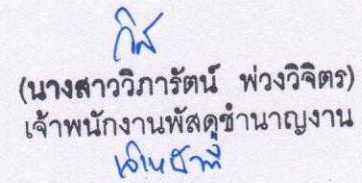 (นางสาววิภารัตน์ พ่วงวิจิตร)
เจ้าพนักงานพัสดุชำนาญงาน
เจ้าหน้าที่